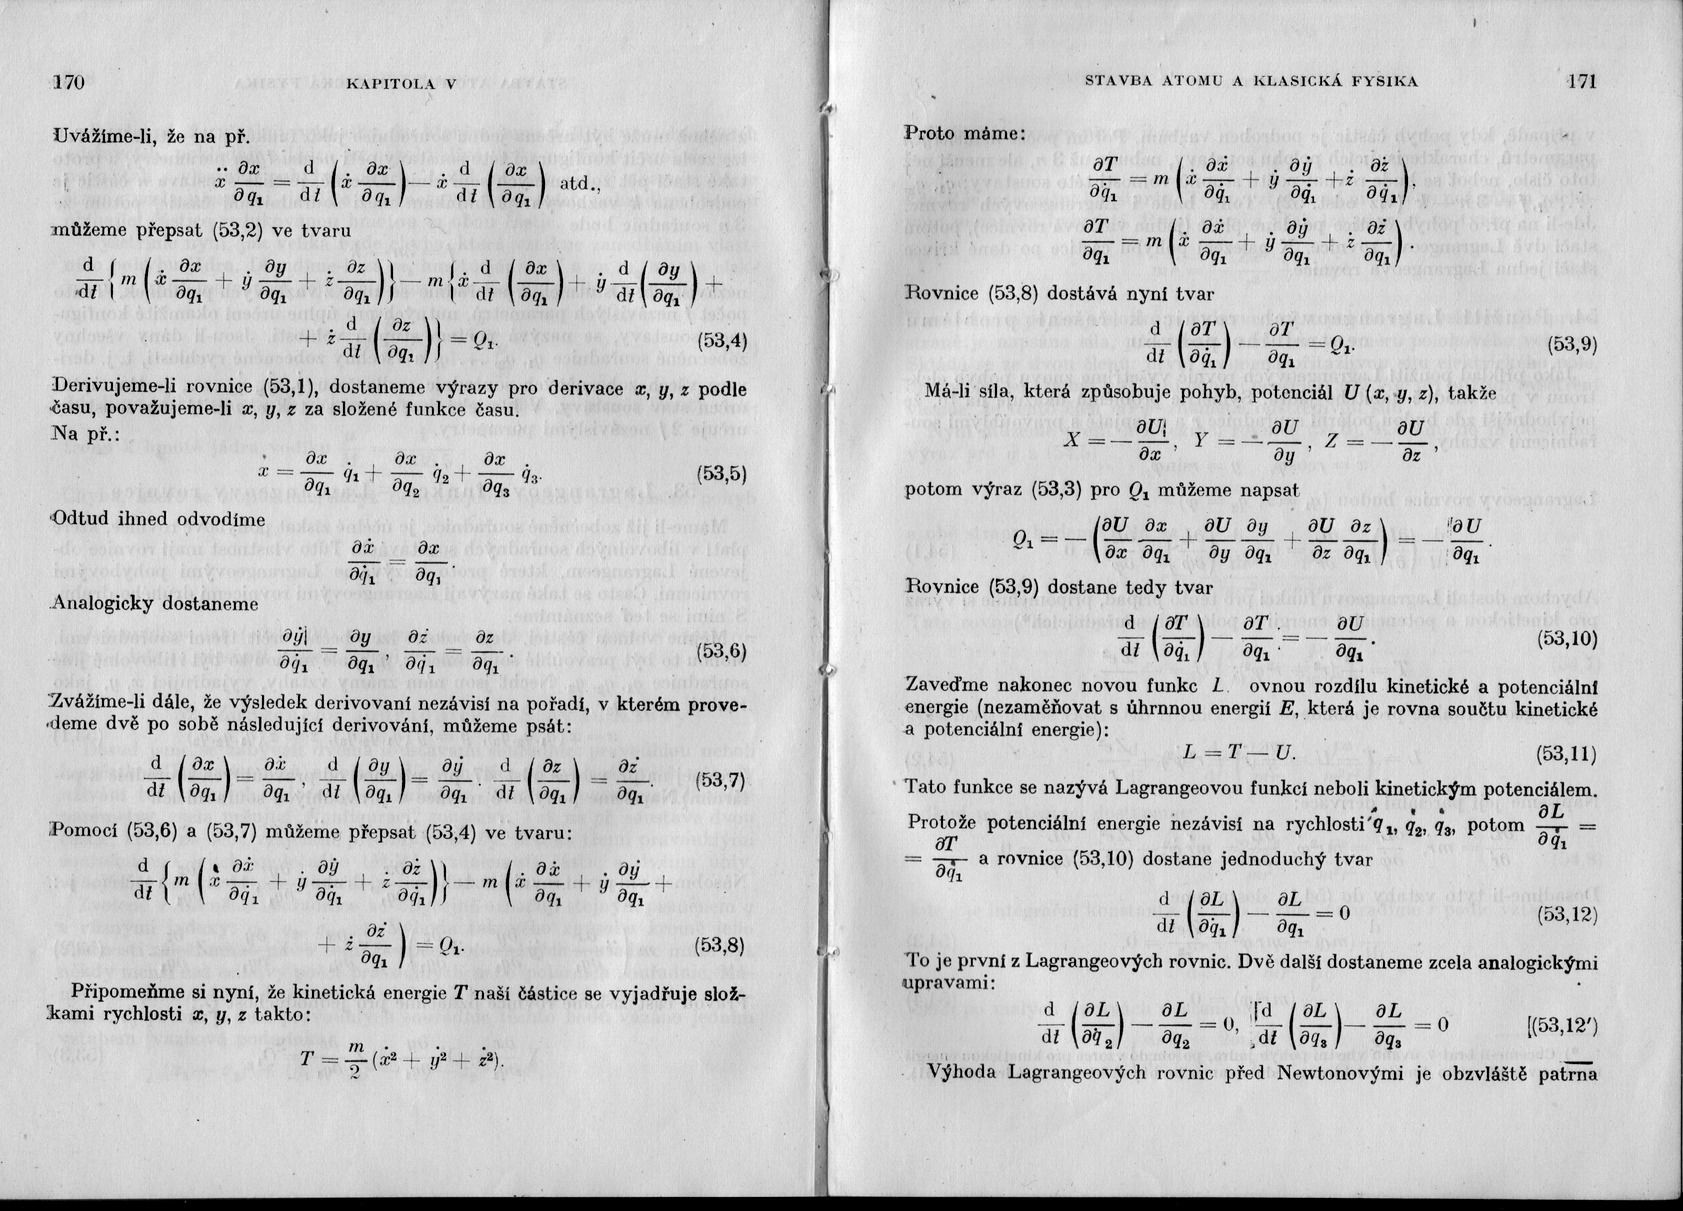 170 KAPITOLA V
Uvážíme-li, že na př.
ẍ ∂x/∂q₁ = d/dt (ẋ ∂x/∂q₁) — ẋ d/dt (∂x/∂q₁) atd.,
můžeme přepsat (53,2) ve tvaru
d/dt {m (ẋ ∂x/∂q₁ + ẏ ∂y/∂q₁ + ż ∂z/∂q₁)} — m {ẋ d/dt (∂x/∂q₁) + ẏ d/dt (∂y/∂q₁) +
+ ż d/dt (∂z/∂q₁)} = Q₁. (53,4)
Derivujeme-li rovnice (53,1), dostaneme výrazy pro derivace x, y, z podle
času, považujeme-li x, y, z za složené funkce času.
Na př.:
ẋ = ∂x/∂q₁ q̇₁ + ∂x/∂q₂ q̇₂ + ∂x/∂q₃ q̇₃. (53,5)
Odtud ihned odvodíme
∂ẋ/∂q̇₁ = ∂x/∂q₁.
Analogicky dostaneme
∂ẏ/∂q̇₁ = ∂y/∂q₁, ∂ż/∂q̇₁ = ∂z/∂q₁. (53,6)
Zvážíme-li dále, že výsledek derivovaní nezávisí na pořadí, v kterém prove-
deme dvě po sobě následující derivování, můžeme psát:
d/dt (∂x/∂q₁) = ∂ẋ/∂q₁, d/dt (∂y/∂q₁) = ∂ẏ/∂q₁. d/dt (∂z/∂q₁) = ∂ż/∂q₁. (53,7)
Pomocí (53,6) a (53,7) můžeme přepsat (53,4) ve tvaru:
d/dt {m (ẋ ∂ẋ/∂q̇₁ + ẏ ∂ẏ/∂q̇₁ + ż ∂ż/∂q̇₁)} — m (ẋ ∂ẋ/∂q₁ + ẏ ∂ẏ/∂q₁ +
+ ż ∂ż/∂q₁) = Q₁. (53,8)
Připomeňme si nyní, že kinetická energie T naší částice se vyjadřuje slož-
kami rychlosti x, y, z takto:
T = m/2 (ẋ² + ẏ² + ż²).
STAVBA ATOMU A KLASICKÁ FYSIKA 171
Proto máme:
∂T/∂q̇₁ = m (ẋ ∂ẋ/∂q̇₁ + ẏ ∂ẏ/∂q̇₁ + ż ∂ż/∂q̇₁),
∂T/∂q₁ = m (ẋ ∂ẋ/∂q₁ + ẏ ∂ẏ/∂q₁ + ż ∂ż/∂q₁).
Rovnice (53,8) dostává nyní tvar
d/dt (∂T/∂q̇₁) — ∂T/∂q₁ = Q₁. (53,9)
Má-li síla, která způsobuje pohyb, potenciál U (x, y, z), takže
X = — ∂U/∂x, Y = — ∂U/∂y, Z = — ∂U/∂z,
potom výraz (53,3) pro Q₁ můžeme napsat
Q₁ = — (∂U/∂x ∂x/∂q₁ + ∂U/∂y ∂y/∂q₁ + ∂U/∂z ∂z/∂q₁) = — ∂U/∂q₁.
Rovnice (53,9) dostane tedy tvar
d/dt (∂T/∂q̇₁) — ∂T/∂q₁ = — ∂U/∂q₁. (53,10)
Zaveďme nakonec novou funkc L ovnou rozdílu kinetické a potenciální
energie (nezaměňovat s úhrnnou energií E, která je rovna součtu kinetické
a potenciální energie):
L = T — U. (53,11)
Tato funkce se nazývá Lagrangeovou funkcí neboli kinetickým potenciálem.
Protože potenciální energie nezávisí na rychlosti q̇₁, q̇₂, q̇₃, potom ∂L/∂q̇₁ =
= ∂T/∂q̇₁ a rovnice (53,10) dostane jednoduchý tvar
d/dt (∂L/∂q̇₁) — ∂L/∂q₁ = 0 (53,12)
To je první z Lagrangeových rovnic. Dvě další dostaneme zcela analogickými
upravami:
d/dt (∂L/∂q̇₂) — ∂L/∂q₂ = 0, [d/dt (∂L/∂q̇₃) — ∂L/∂q₃ = 0 [(53,12')
Výhoda Lagrangeových rovnic před Newtonovými je obzvláště patrna